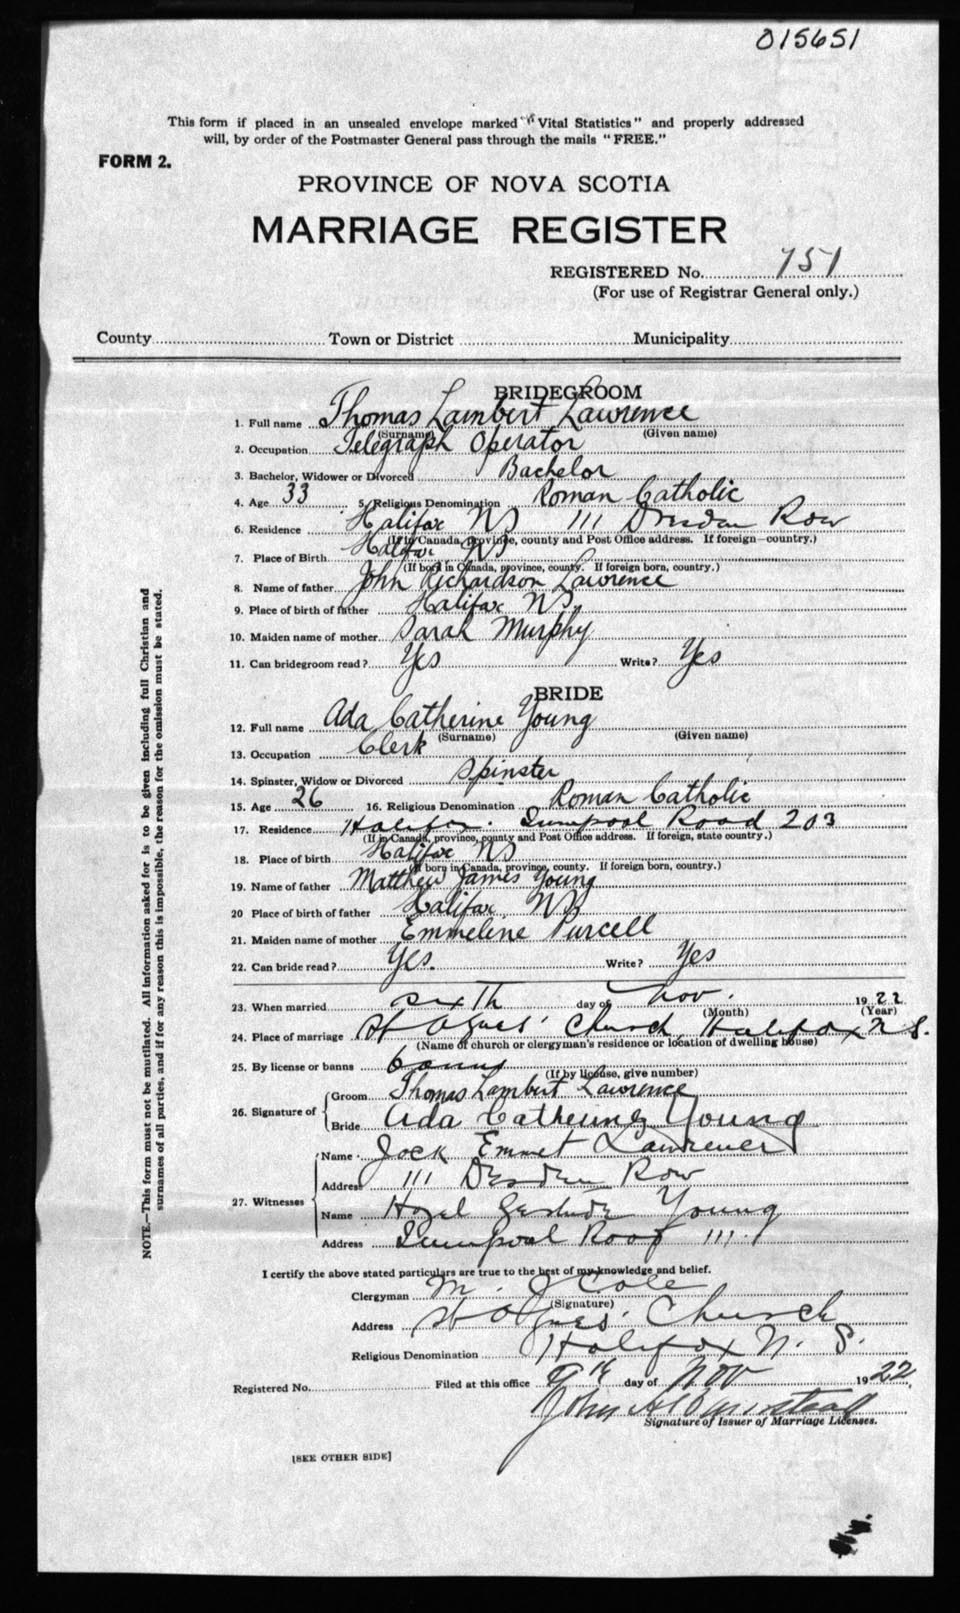 015651
This form if placed in an unsealed envelope marked "Vital Statistics" and properly addressed
will, by order of the Postmaster General pass through the mails "FREE."
FORM 2.
PROVINCE OF NOVA SCOTIA
MARRIAGE REGISTER
REGISTERED No. 751
(For use of Registrar General only.)
County Town or District Municipality
BRIDEGROOM
1. Full name Thomas Lambert Lawrence
(Surname) (Given name)
2. Occupation Telegraph Operator
3. Bachelor, Widower or Divorced Bachelor
4. Age 33 5. Religious Denomination Roman Catholic
6. Residence Halifax NS 111 Dresden Row
(If in Canada, province, county and Post Office address. If foreign—country.)
7. Place of Birth Halifax NS
(If born in Canada, province, county. If foreign born, country.)
8. Name of father John Richardson Lawrence
9. Place of birth of father Halifax NS
10. Maiden name of mother Sarah Murphy
11. Can bridegroom read? Yes Write? Yes
BRIDE
12. Full name Ada Catherine Young
(Surname) (Given name)
13. Occupation Clerk
14. Spinster, Widow or Divorced Spinster
15. Age 26 16. Religious Denomination Roman Catholic
17. Residence Halifax. Road 203
(If in Canada, province, county and Post Office address. If foreign, state country.)
18. Place of birth Halifax NS
(If born in Canada, province, county. If foreign born, country.)
19. Name of father Matthew James Young
20 Place of birth of father Halifax NS
21. Maiden name of mother Emmeline Purcell
22. Can bride read? Yes. Write? Yes
23. When married sixth day of Nov. 1922
(Month) (Year)
24. Place of marriage St Agnes' Church, Halifax N S.
(Name of church or clergyman's residence or location of dwelling house)
25. By license or banns banns
(If by license, give number)
26. Signature of Groom Thomas Lambert Lawrence
Bride Ada Catherine Young
27. Witnesses Name Jack Emmet Lawrence
Address 111 Dresden Row
Name Hazel Gertrude Young
Address 111.
I certify the above stated particulars are true to the best of my knowledge and belief.
Clergyman M. J Cole
(Signature)
Address St Agnes' Church
Religious Denomination Halifax N. S.
Registered No. Filed at this office 9th day of Nov 1922
John
Signature of Issuer of Marriage Licenses.
[SEE OTHER SIDE]
NOTE.—This form must not be mutilated. All information asked for is to be given including full Christian and
surnames of all parties, and if for any reason this is impossible, the reason for the omission must be stated.